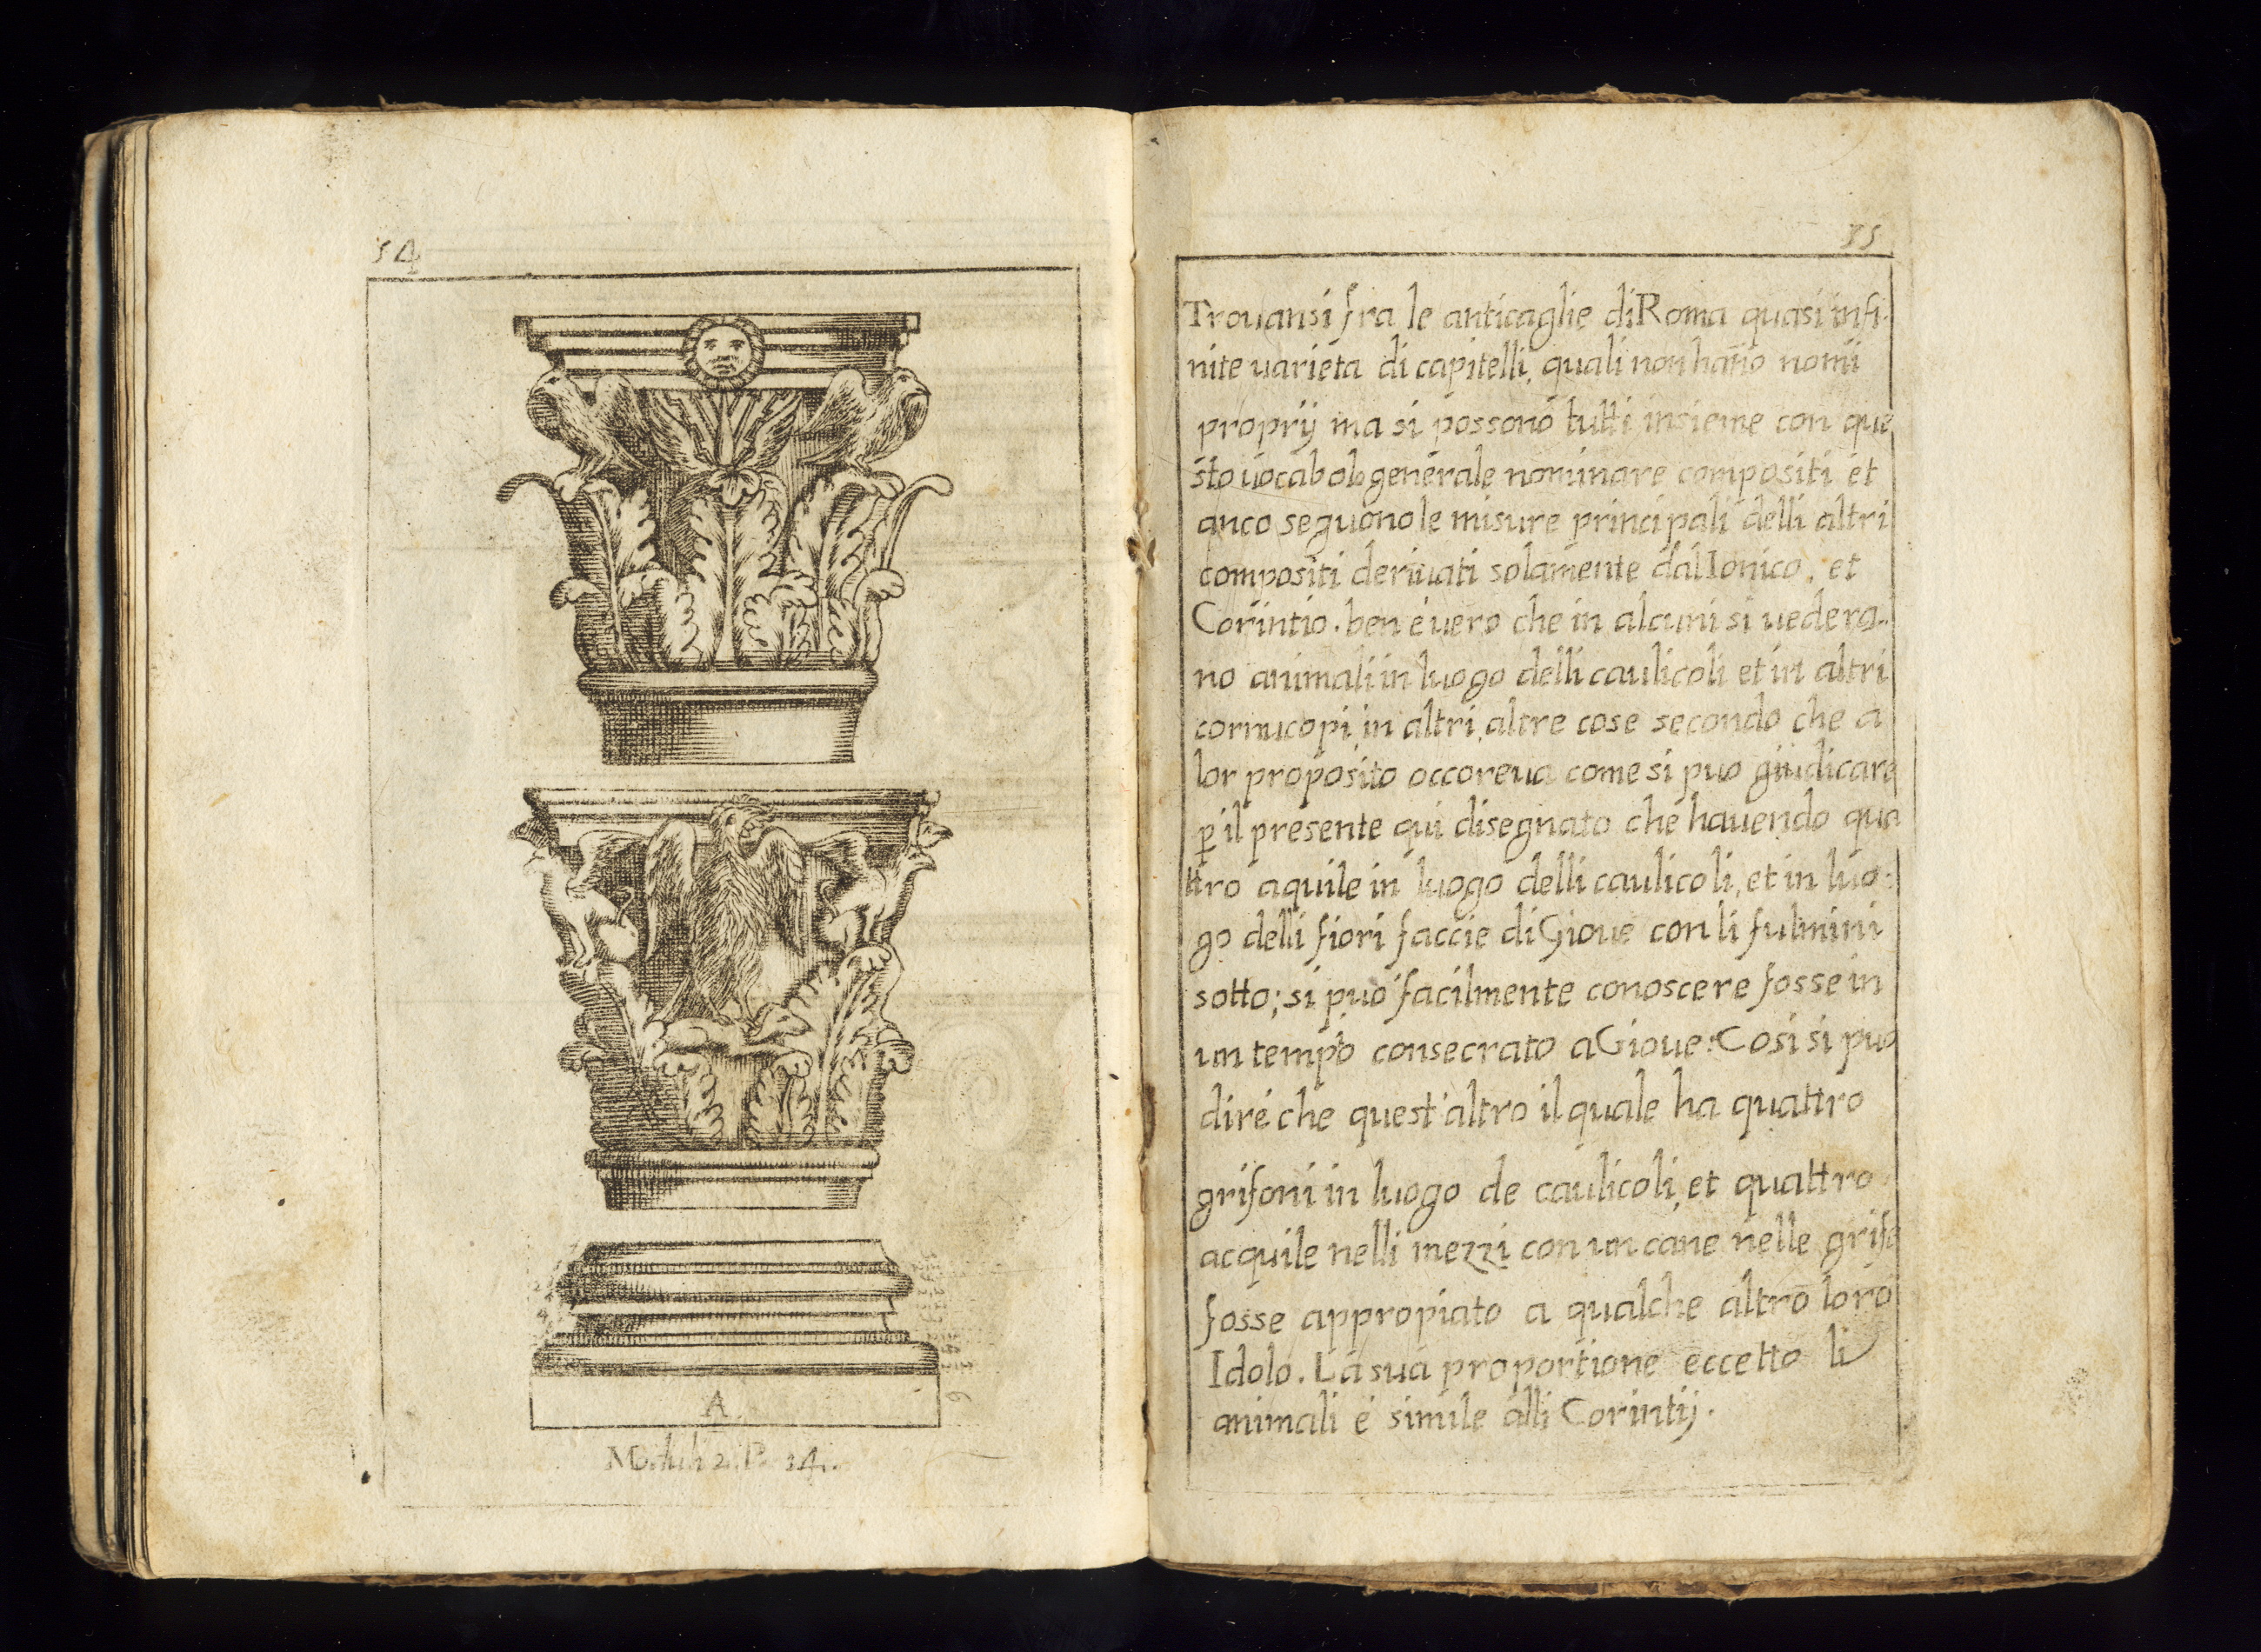 54
A
Moduli 2. P. 14.
55
Trovansi fra le anticaglie di Roma quasi infi-
nite varieta di capitelli, quali non hāno nomi
proprij ma si possono tutti insieme con que
sto vocabolo generale nominare compositi et
anco seguono le misure principali delli altri
compositi derivati solamente dal Ionico, et
Corintio. ben é vero che in alcuni si vedera-
no animali in luogo delli caulicoli et in altri
cornucopi, in altri, altre cose secondo che a
lor proposito occoreva come si puo giudicare
p il presente qui disegnato che havendo qua
ttro aquile in luogo delli caulicoli, et in luo-
go delli fiori faccie di Giove con li fulmini
sotto; si puo facilmente conoscere fosse in
un tempo consecrato a Giove: Cosi si puo
dire che quest'altro il quale ha quattro
grifoni in luogo de caulicoli, et quattro
acquile nelli mezzi con un cane nelle grife
fosse appropiato a qualche altro loro
Idolo. La sua proportione eccetto li
animali é simile alli Corintij.